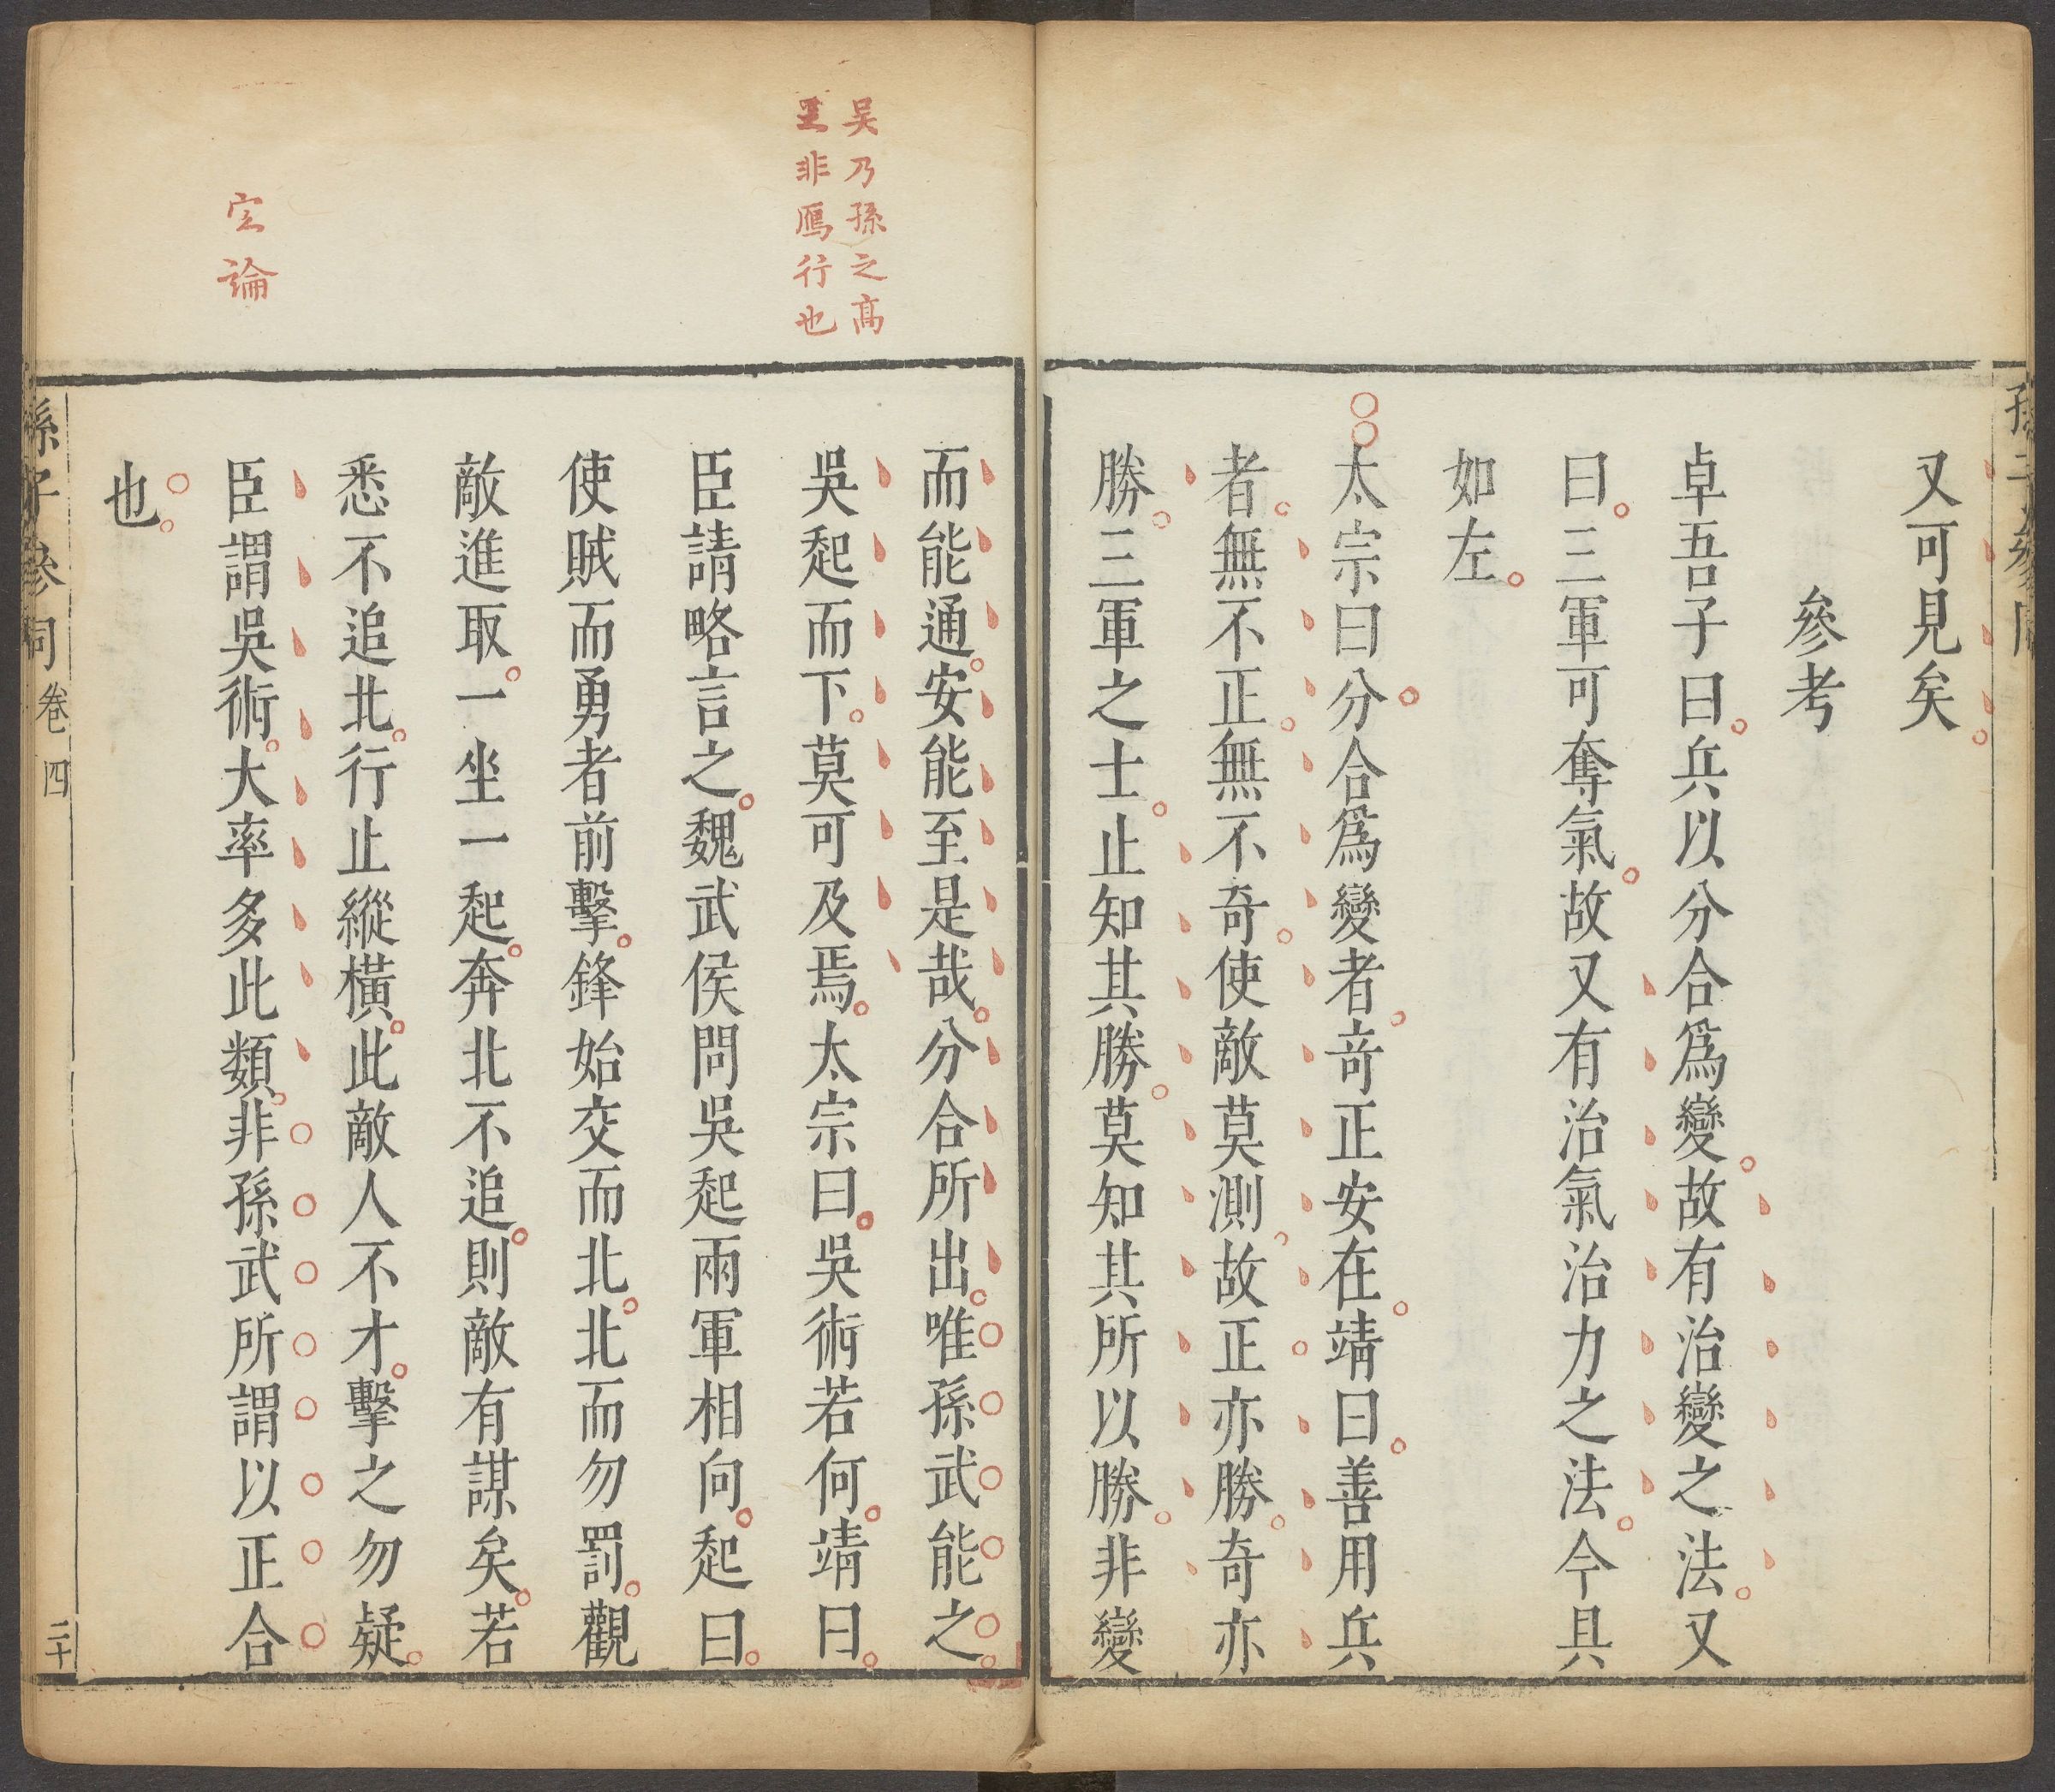 又可見矣
參考
卓吾子曰兵以分合爲變故有治變之法又
曰三軍可奪氣故又有治氣治力之法今具
如左
太宗曰分合爲變者竒正安在靖曰善用兵
者無不正無不奇使敵莫測故正亦勝奇亦
勝三軍之士止知其勝莫知其所以勝非變
吴乃孫之髙
弟非鴈行也
而能通安能至是哉分合所出唯孫武能之
吳起而下莫可及焉太宗曰吳術若何靖曰
臣請略言之魏武侯問吳起兩軍相向起曰
使賊而勇者前擊鋒始交而北北而勿罰觀
敵進取一坐一起奔北不追則敵有謀矣若
悉不追北行止縱橫此敵人不才擊之勿疑
定論
臣謂吳術大率多此類非孫武所謂以正合
也
孫子參同 卷四 二十